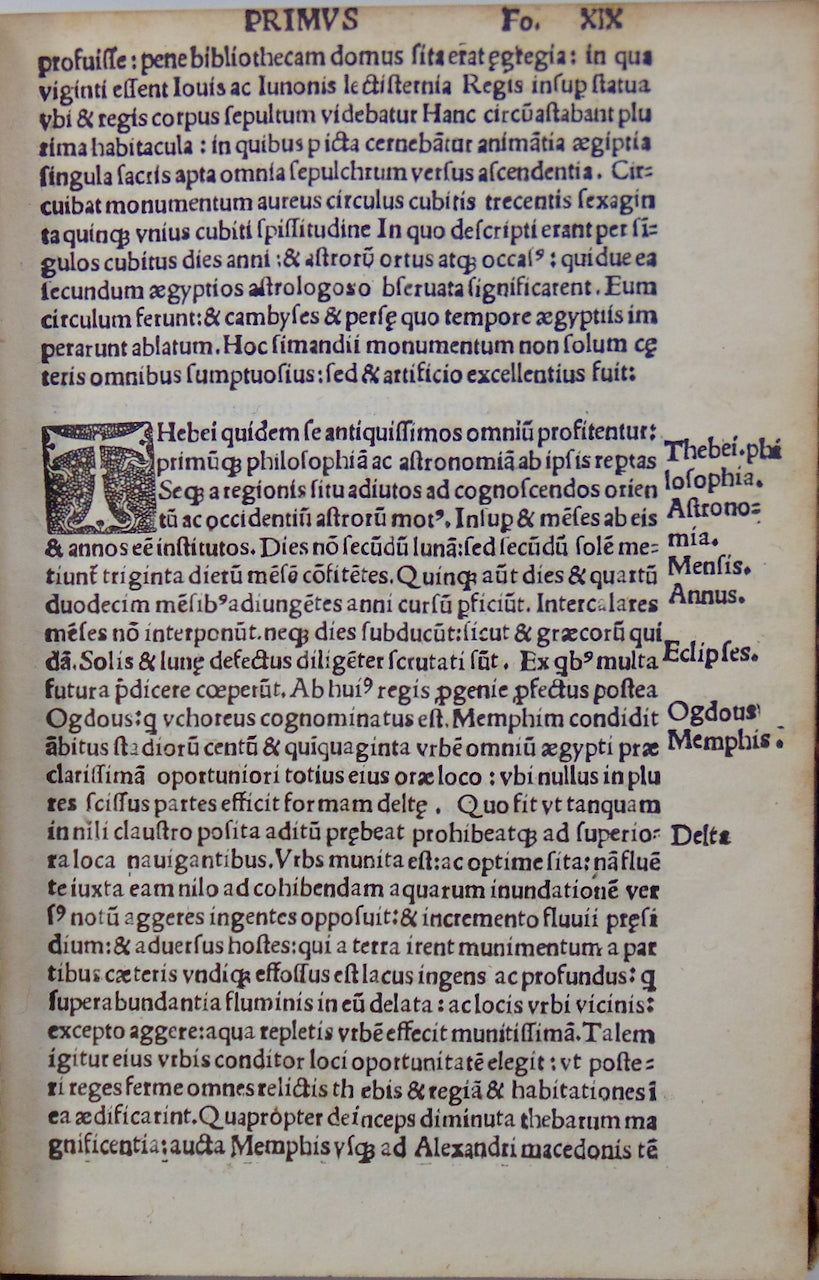 PRIMVS Fo. XIX
profuiſſe : pene bibliothecam domus ſita er̃at ęgregia: in qua
viginti eſſent Iouis ac Iunonis lectiſternia Regis inſup ſtatua
vbi & regis corpus ſepultum videbatur Hanc circũaſtabant plu
rima habitacula : in quibus picta cernebãtur animãtia ægiptia
ſingula ſacris apta omnia ſepulchrum verſus aſcendentia. Cir⸗
cuibat monumentum aureus circulus cubitis trecentis ſexagin
ta quinqꝫ vnius cubiti ſpiſſitudine In quo deſcripti erant per ſĩ⸗
gulos cubitus dies anni :& aſtrorũ ortus atqꝫ occaſꝰ : quidue ea
ſecundum ægyptios aſtrologoso bſeruata ſignificarent. Eum
circulum ferunt:& cambyſes & perſę quo tempore ægyptiis im
perarunt ablatum. Hoc ſimandii monumentum non ſolum cę
teris omnibus ſumptuoſius:ſed & artificio excellentius fuit:
THebei quidem ſe antiquiſſimos omniũ profitentur:
primũqꝫ philoſophiã ac aſtronomiã ab ipſis reptas
Seqꝫ a regionis ſitu adiutos ad cognoſcendos orien
tũ ac occidentiũ aſtrorũ motꝰ. Inſup & mẽſes ab eis
& annos eẽ inſtitutos. Dies nõ ſecũdũ lunã:ſed ſecũdũ ſolẽ me⸗
tiunt̃ triginta dierũ mẽſẽ cõſitẽtes. Quinqꝫ aũt dies & quartũ
duodecim mẽſibꝰ adiungẽtes anni curſũ ꝑficiũt. Intercalares
mẽſes nõ interponũt.neqꝫ dies ſubducũt:ſicut & græcorũ qui
dã. Solis & lunę defectus diligẽter ſcrutati ſũt. Ex qbꝰ multa
futura p̃dicere cœperũt. Ab huiꝰ regis ꝓgenie ꝓfectus poſtea
Ogdous:ꝗ vchoreus cognominatus eſt. Memphim condidit
ãbitus ſtadiorũ centũ & quĩquaginta vrbẽ omniũ ægypti præ
clariſſimã oportuniori totius eius oræ loco : vbi nullus in plu
res ſciſſus partes efficit formam deltę . Quo fit vt tanquam
in nili clauſtro poſita aditũ prębeat prohibeatqꝫ ad ſuperio⸗
ra loca nauigantibus. Vrbs munita eſt:ac optime ſita: nã fluẽ
te iuxta eam nilo ad cohibendam aquarum inundationẽ ver
ſꝰ notũ aggeres ingentes oppoſuit:& incremento fluuii pręſi
dium:& aduerſus hoſtes:qui a terra irent munimentum a par
tibus cæteris vndiqꝫ effoſſus eſt lacus ingens ac profundus: ꝗ
ſuperabundantia fluminis in eũ delata : ac locis vrbi vicinis:
excepto aggere:aqua repletis vrbẽ effecit munitiſſimã. Talem
igitur eius vrbis conditor loci oportunitatẽ elegit : vt poſte⸗
ri reges ferme omnes relictis th ebis & regiã & habitationes ĩ
ea ædificarint. Quapropter deinceps diminuta thebarum ma
gnificentia:aucta Memphis vſqꝫ ad Alexandri macedonis tẽ
Thebei.phi
loſophia.
Aſtrono⸗
mia.
Menſis.
Annus.
Eclipſes.
Ogdous
Memphis.
Delta